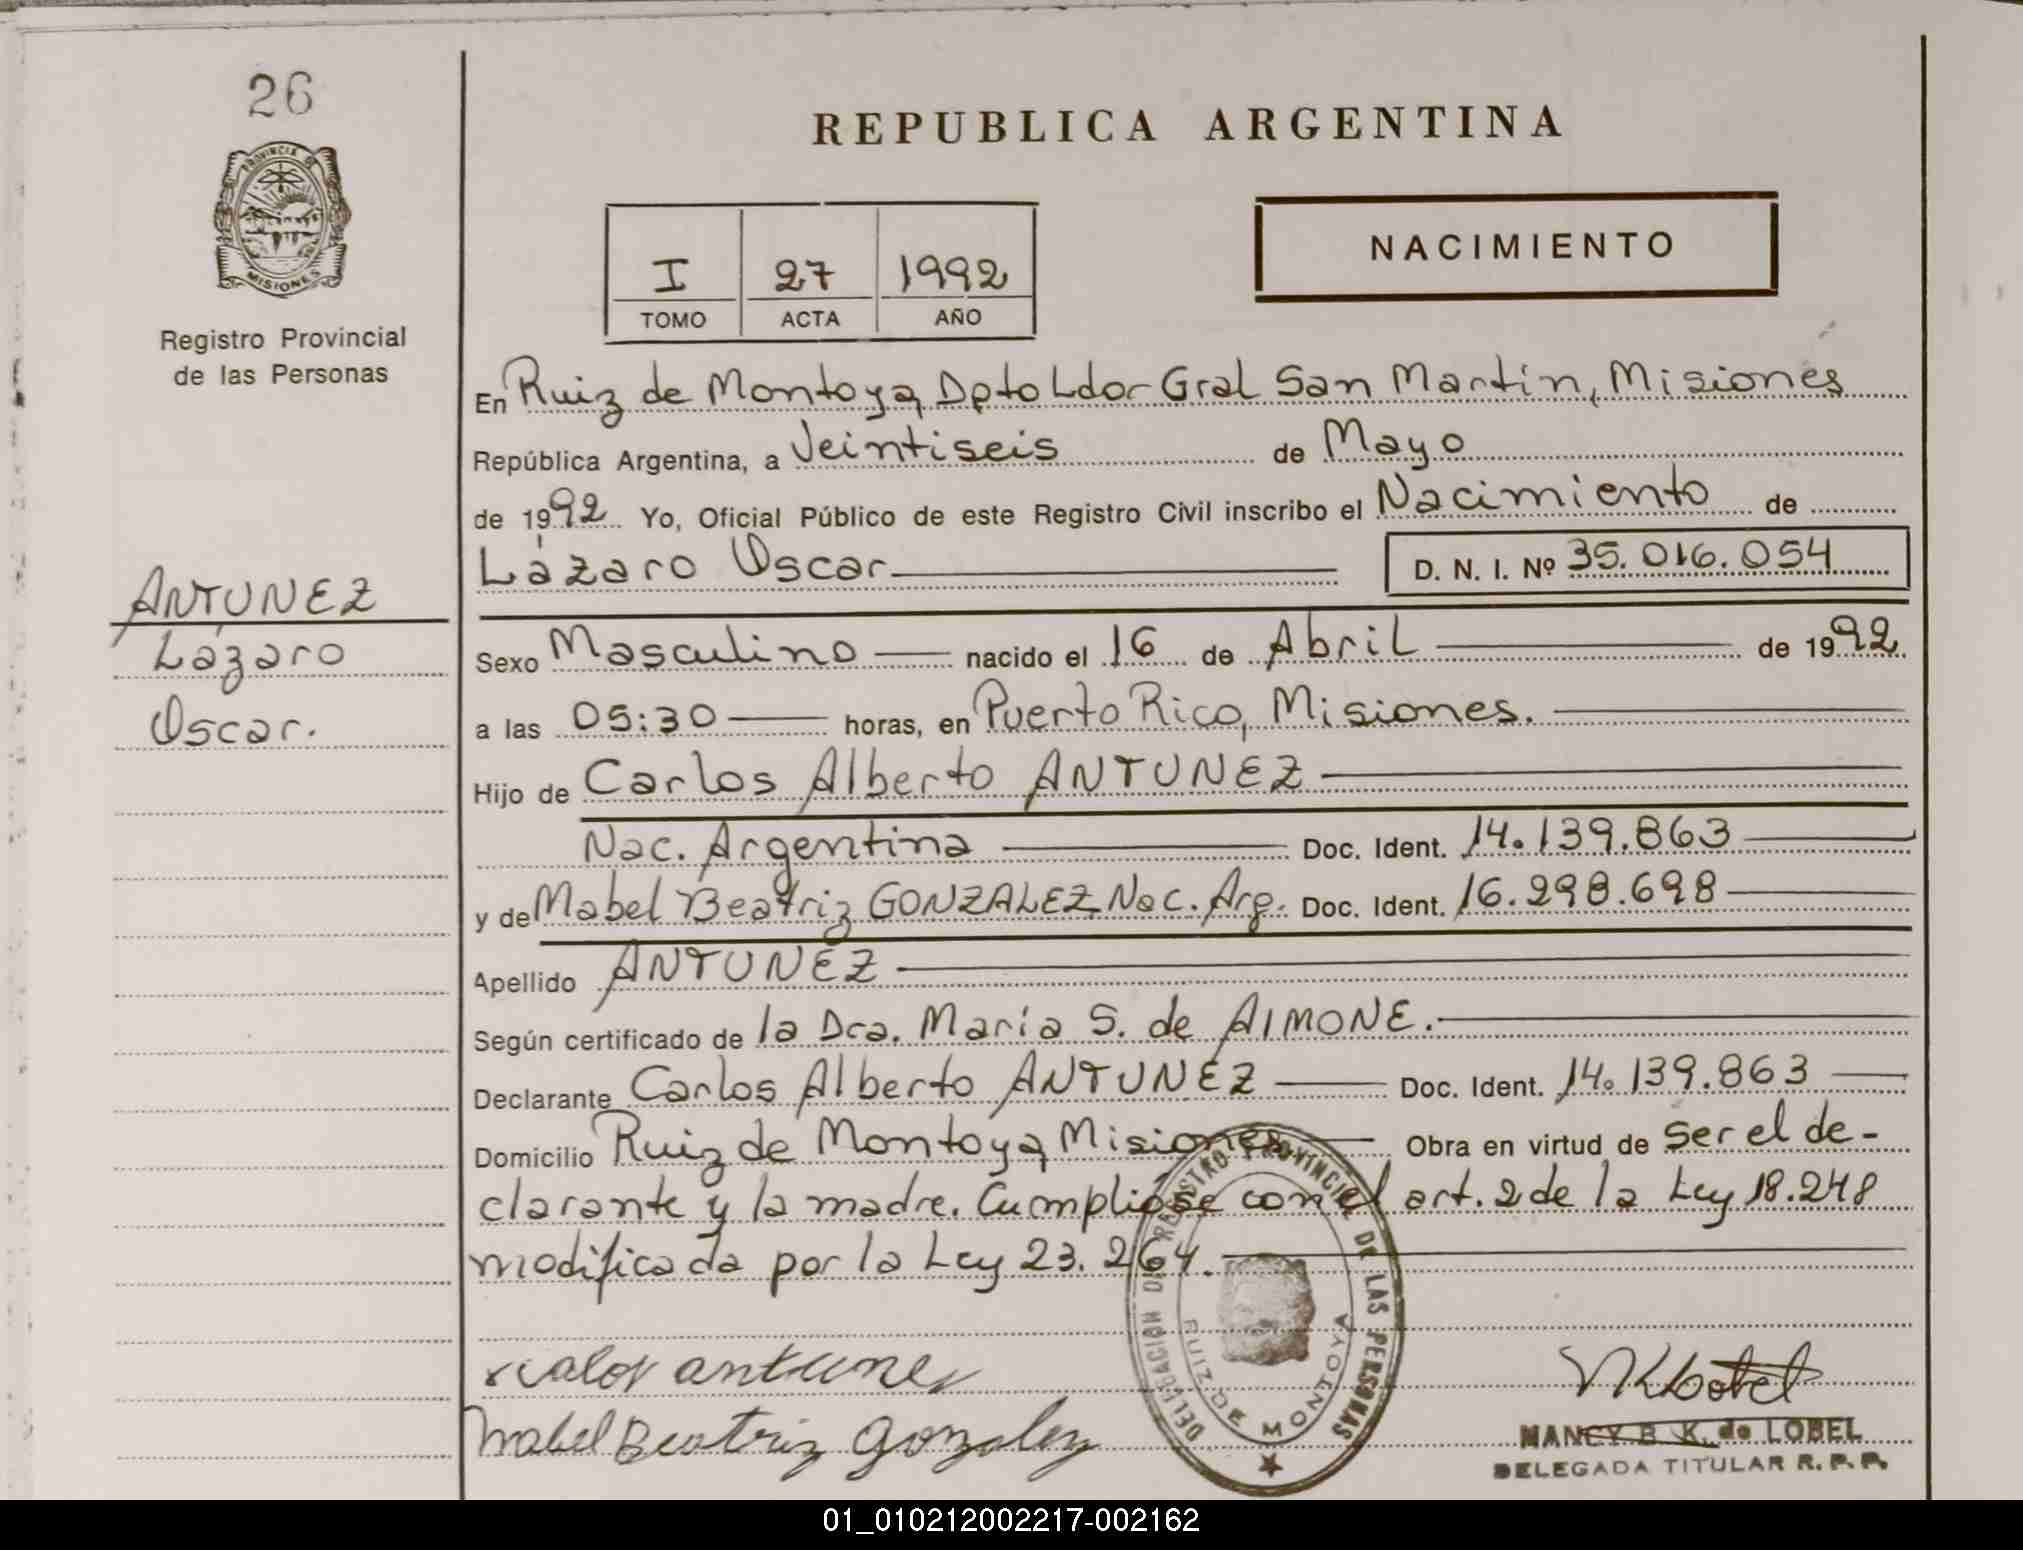 26
PROVINCIA DE
MISIONES
Registro Provincial
de las Personas
ANTUNEZ
Lázaro
Oscar.
REPUBLICA ARGENTINA
I 27 1992
TOMO ACTA AÑO
NACIMIENTO
En Ruiz de Montoya, Dpto Ldor Gral San Martín, Misiones
República Argentina, a Veintiseis de Mayo
de 1992 Yo, Oficial Público de este Registro Civil inscribo el Nacimiento de
Lázaro Oscar D. N. I. Nº 35.016.054
Sexo Masculino nacido el 16 de Abril de 1992
a las 05:30 horas, en Puerto Rico, Misiones.
Hijo de Carlos Alberto ANTUNEZ
Nac. Argentina Doc. Ident. 14.139.863
y de Mabel Beatriz GONZALEZ Nac. Arg. Doc. Ident. 16.298.698
Apellido ANTUNEZ
Según certificado de la Dra. María S. de AIMONE.
Declarante Carlos Alberto ANTUNEZ Doc. Ident. 14.139.863
Domicilio Ruiz de Montoya, Misiones Obra en virtud de ser el de-
clarante y la madre. Cumplióse con el art. 2 de la Ley 18.248
modificada por la Ley 23.264.
DELEGACION DEL REGISTRO PROVINCIAL DE LAS PERSONAS
RUIZ DE MONTOYA
Mabel Beatriz Gonzalez
NANCY B. K. de LOBEL
DELEGADA TITULAR R. P. P.
01_010212002217-002162